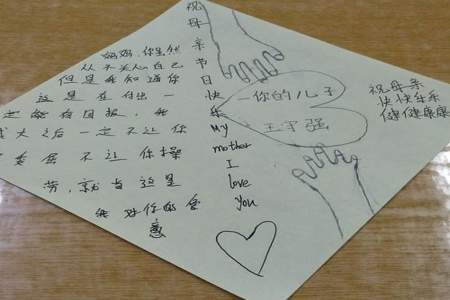 妈妈,你虽然
从不关心自己
但是我知道你
这是在付出一
定能有回报,我
长大之后一定不让你
受委屈不让你操
劳,就当这是
我对你的会
意
祝
母
亲
节
日
快
乐
My
mother
I
love
you
一你的儿子
王宇强
祝母亲
快快乐乐
健健康康